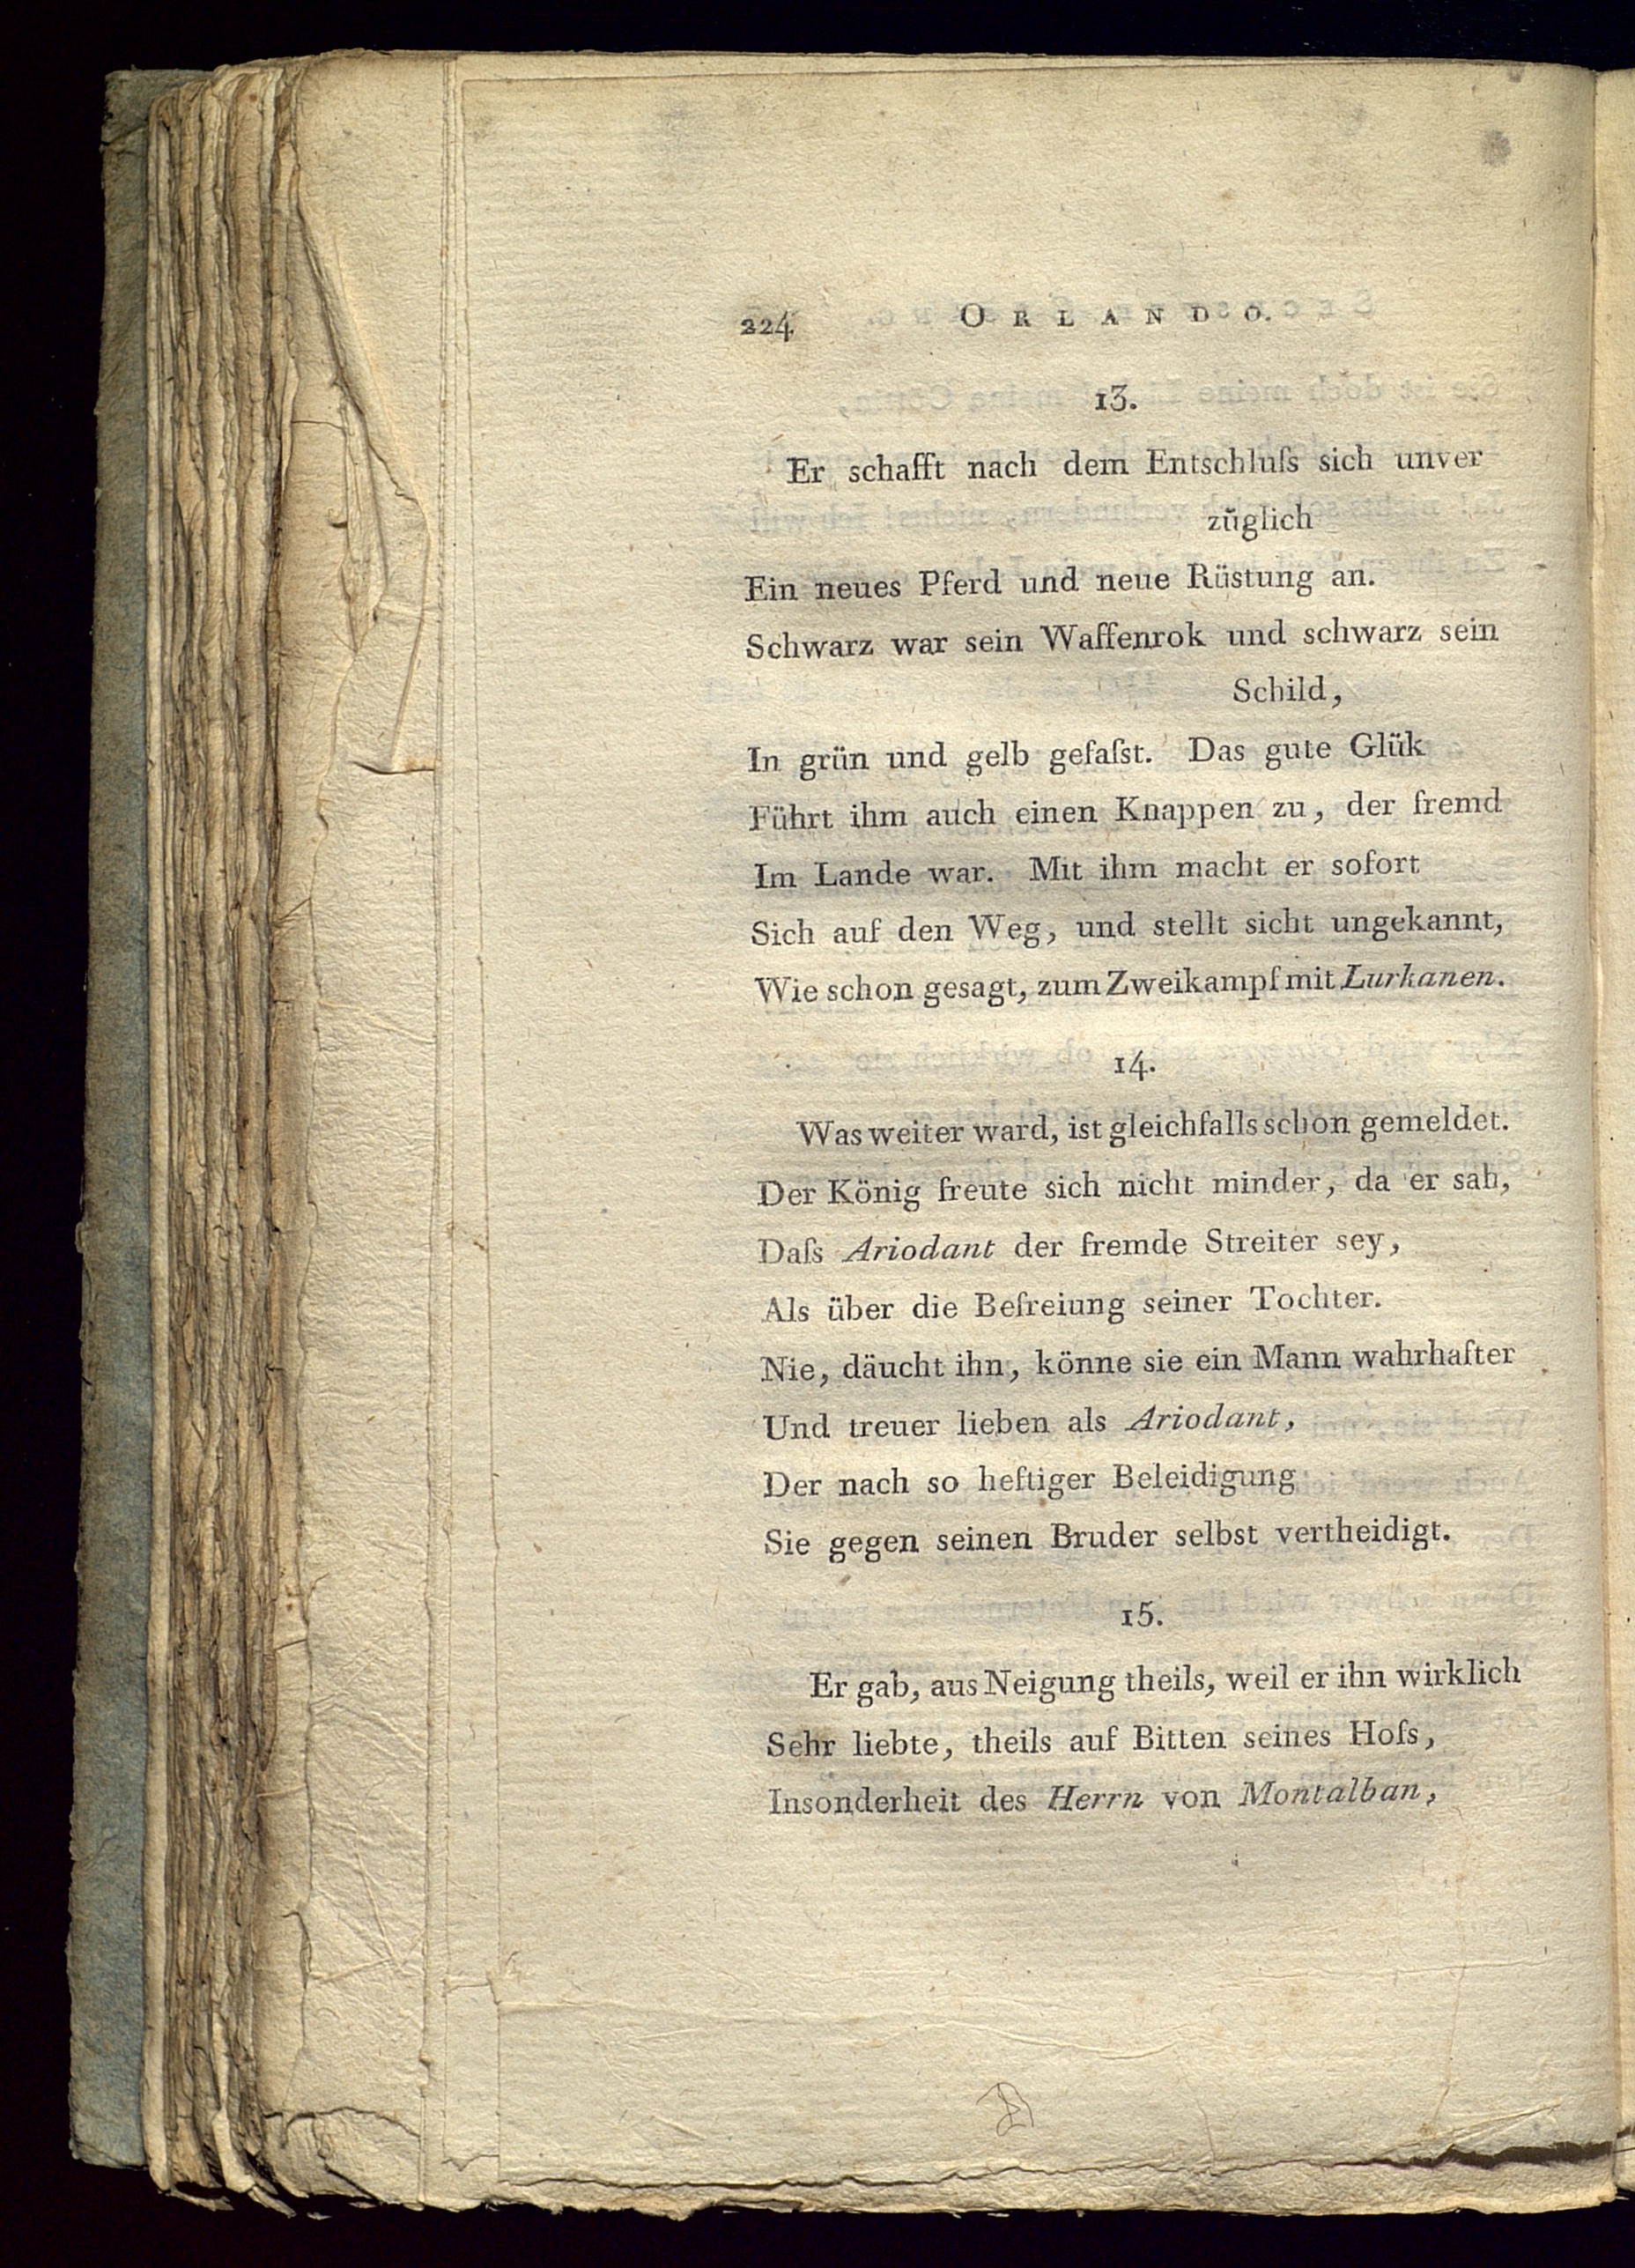 224 ORLANDO.
13.
Er schafft nach dem Entschluſs sich unver
züglich
Ein neues Pferd und neue Rüstung an.
Schwarz war sein Waffenrok und schwarz sein
Schild,
In grün und gelb gefaſst. Das gute Glük
Führt ihm auch einen Knappen zu, der fremd
Im Lande war. Mit ihm macht er sofort
Sich auf den Weg, und stellt sicht ungekannt,
Wie schon gesagt, zum Zweikampf mit Lurkanen.
14.
Was weiter ward, ist gleichfalls schon gemeldet.
Der König freute sich nicht minder, da er sah,
Daſs Ariodant der fremde Streiter sey,
Als über die Befreiung seiner Tochter.
Nie, däucht ihn, könne sie ein Mann wahrhafter
Und treuer lieben als Ariodant,
Der nach so heftiger Beleidigung
Sie gegen seinen Bruder selbst vertheidigt.
15.
Er gab, aus Neigung theils, weil er ihn wirklich
Sehr liebte, theils auf Bitten seines Hofs,
Insonderheit des Herrn von Montalban,